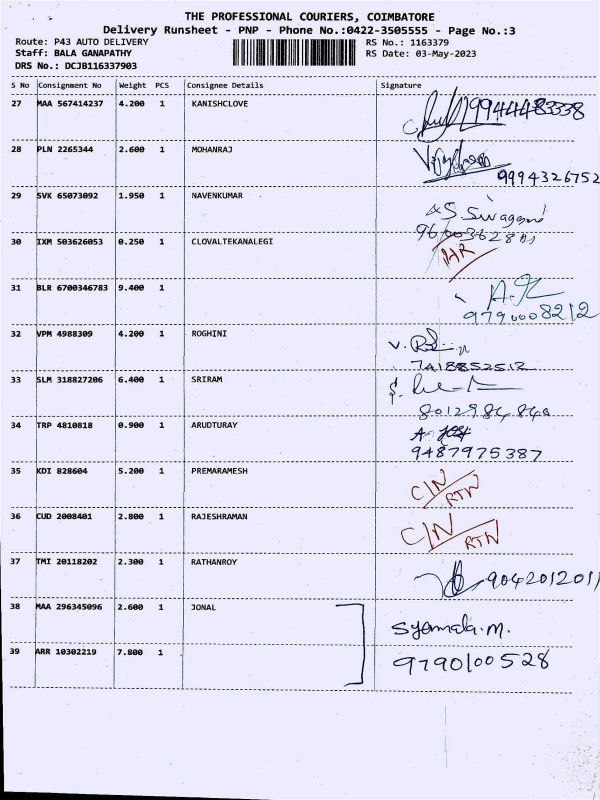 THE PROFESSIONAL COURIERS, COIMBATORE
Delivery Runsheet - PNP - Phone No.:0422-3505555 - Page No.:3
Route: P43 AUTO DELIVERY RS No.: 1163379
Staff: BALA GANAPATHY RS Date: 03-May-2023
DRS No.: DCJB116337903
S No Consignment No Weight PCS Consignee Details Signature
27 MAA 567414237 4.200 1 KANISHCLOVE
28 PLN 2265344 2.600 1 MOHANRAJ
9994326752
29 SVK 65073092 1.950 1 NAVENKUMAR
S. Sivagami
30 IXM 503626053 0.250 1 CLOVALTEKANALEGI
31 BLR 6700346783 9.400 1
9790008212
32 VPM 4988309 4.200 1 ROGHINI
7418852512
33 SLM 318827206 6.400 1 SRIRAM
34 TRP 4810818 0.900 1 ARUDTURAY
9487975387
35 KDI 828604 5.200 1 PREMARAMESH
C/N
RTN
36 CUD 2008401 2.800 1 RAJESHRAMAN
C/N
RTN
37 TMI 20118202 2.300 1 RATHANROY
9042012011
38 MAA 296345096 2.600 1 JONAL
Syamala.M.
39 ARR 10302219 7.800 1
9790100528